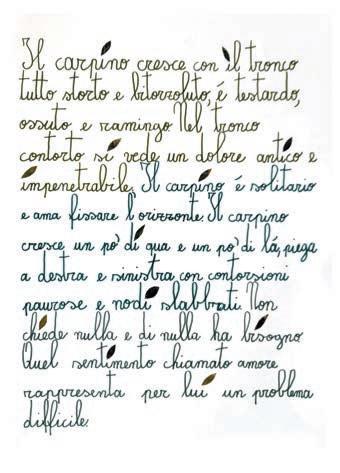 Il carpino cresce con il tronco
tutto storto e bitorzoluto, é testardo,
ossuto e ramingo. Nel tronco
contorto si vede un dolore antico e
impenetrabile. Il carpino é solitario
e ama fissare l'orizzonte. Il carpino
cresce un po' di qua e un po' di lá, piega
a destra e sinistra con contorsioni
paurose e nodi slabbrati. Non
chiede nulla e di nulla ha bisogno
Quel sentimento chiamato amore
rappresenta per lui un problema
difficile.